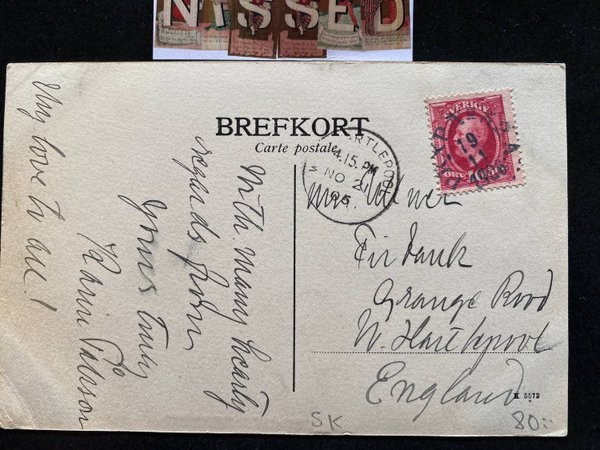 NISSED
BREFKORT
Carte postale
SVERIGE
ÖRE 10
19
11
HARTLEPOOL
4.15 PM
NO 21
05
My love to all!
With many hearty
regards from
Yours truly
Karin
Firbank
Grange Road
W. Hartlepool
England
K 5572
SK
80:-